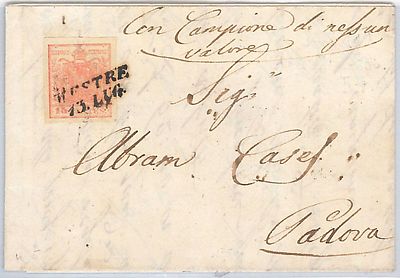 Con Campione di nessun
valore
MESTRE
13. LUG.
Sig.r
Abram Cases
Padova